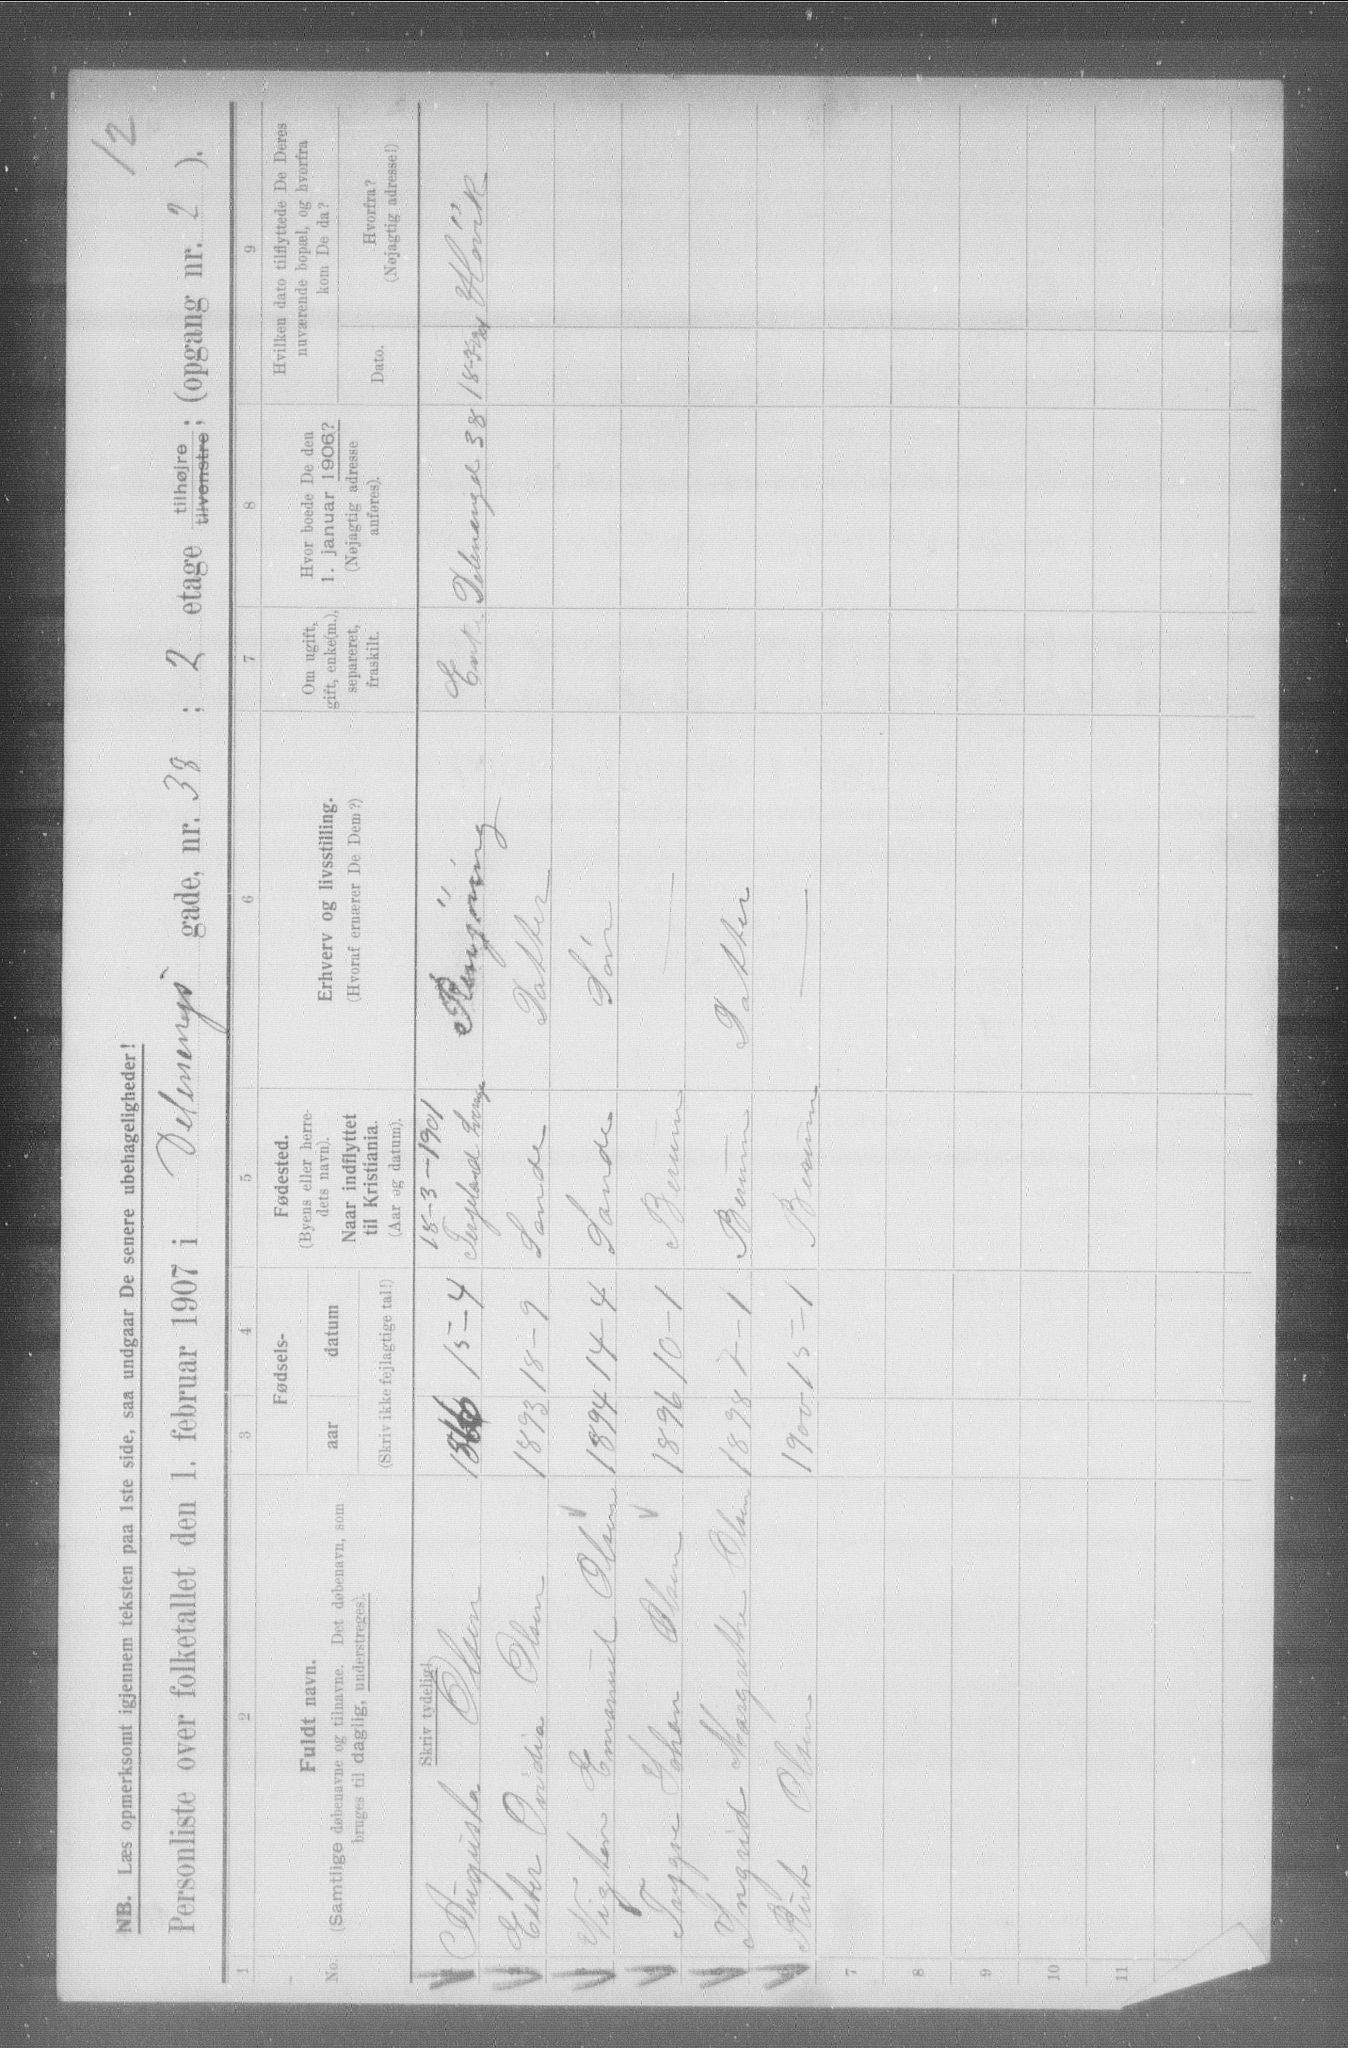 12
NB. Læs opmerksomt igjennem teksten paa 1ste side, saa undgaar De senere ubehageligheder!
Personliste over folketallet den 1. februar 1907 i Delenengs gade, nr. 38 ; 2 etage tilhøjre tilvenstre; (opgang nr. 2 ).
1 2 3 4 5 6 7 8 9
No.
Fuldt navn.
(Samtlige døbenavne og tilnavne. Det døbenavn, som
bruges til daglig, understreges).
Fødsels-
aar datum
(Skriv ikke fejlagtige tal!)
Fødested.
(Byens eller herre-
dets navn).
Naar indflyttet
til Kristiania.
(Aar og datum).
Erhverv og livsstilling.
(Hvoraf ernærer De Dem?)
Om ugift,
gift, enke(m.),
separeret,
fraskilt.
Hvor boede De den
1. januar 1906?
(Nøjagtig adresse
anføres).
Hvilken dato tilflyttede De Deres
nuværende bopæl, og hvorfra
kom De da?
Dato.
Hvorfra?
(Nøjagtig adresse!)
Skriv tydelig!
18-3-1901
1 Augusta Olsen 1866 15-4 Rengöring Enke Delenengd 38 Hövik
2 Ester Ovidia Olsen 1893 18-9 Sande Datter
3 Vigten Emanuel Olsen 1894 14-4 Sande Sön
4 Trygve Johan Olsen 1896 10-1 Berum —
5 Ingrid Margrethe Olsen 1898 7-1 Berum Datter
6 Rut Olsen 1900 15-1 Berum —
7
8
9
10
11